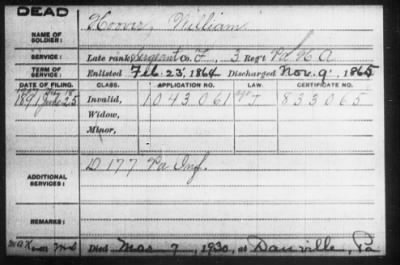 DEAD
NAME OF SOLDIER: Hoover, William
SERVICE: Late rank Sergeant Co. F, 3 Reg't Pa H A
TERM OF SERVICE: Enlisted Feb. 23, 1864 Discharged Nov. 9, 1865
DATE OF FILING. CLASS. APPLICATION NO. LAW. CERTIFICATE NO.
1891 June 25 Invalid, 1043061 J 833065
Widow,
Minor,
ADDITIONAL SERVICES: D 177 Pa Inf.
REMARKS:
Died Mar 7, 1930, at Danville, Pa